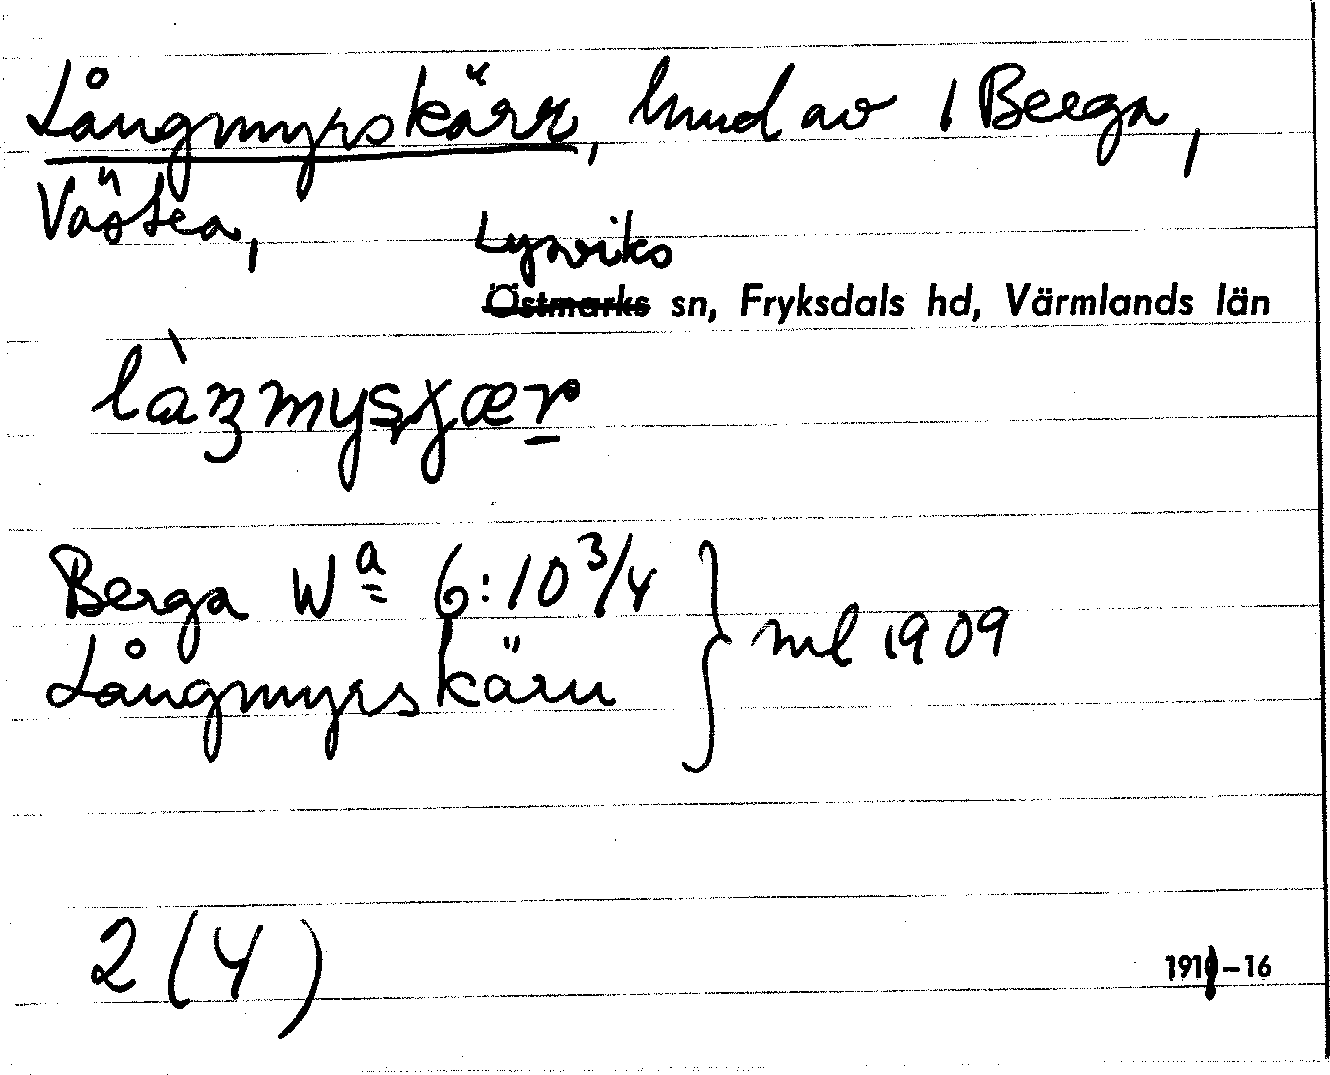 Långmyrskärr, hmd av 1 Berga,
Västra,
Lysviks
Östmarks sn, Fryksdals hd, Värmlands län
Berga Wᵃ 6:10 3/4
Långmyrskärn } ml 1909
2 (4)
1911-16